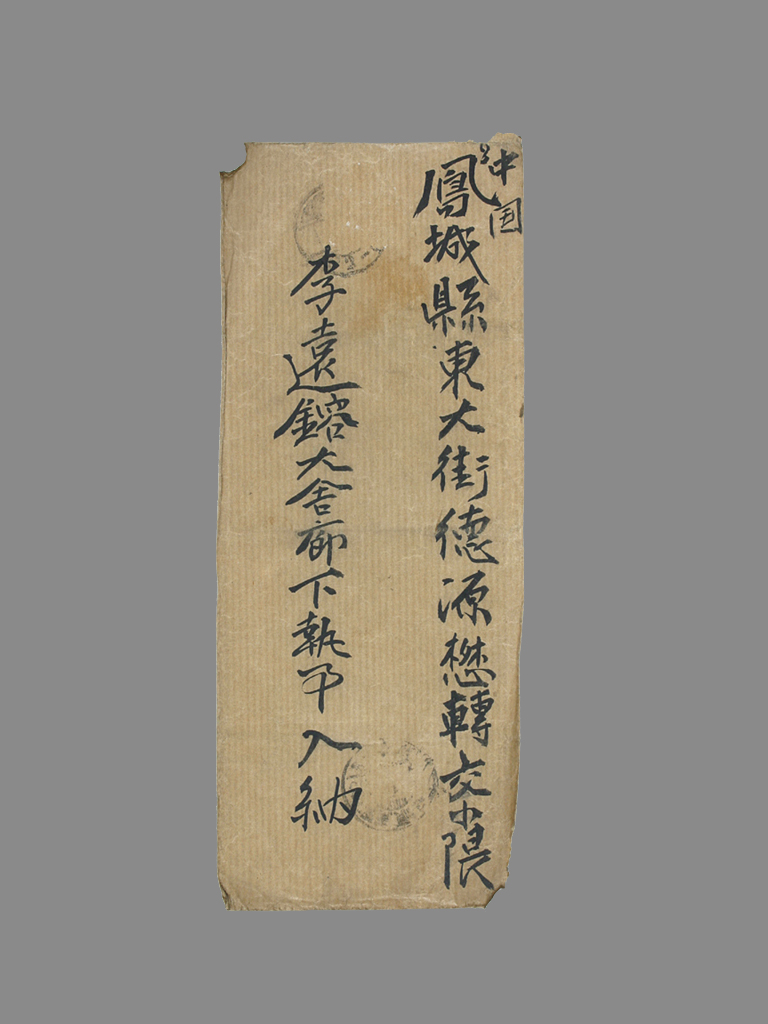 中国
鳳城縣東大街德源懋轉交小隈
李遠鎔大舍廊下執事入納